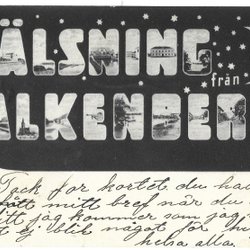 ÄLSNING
från
ALKENBER
Tack for kortet du ha
fått mitt bref när du
itt jag kommer som jag s
t ej blir något för
helsa alla